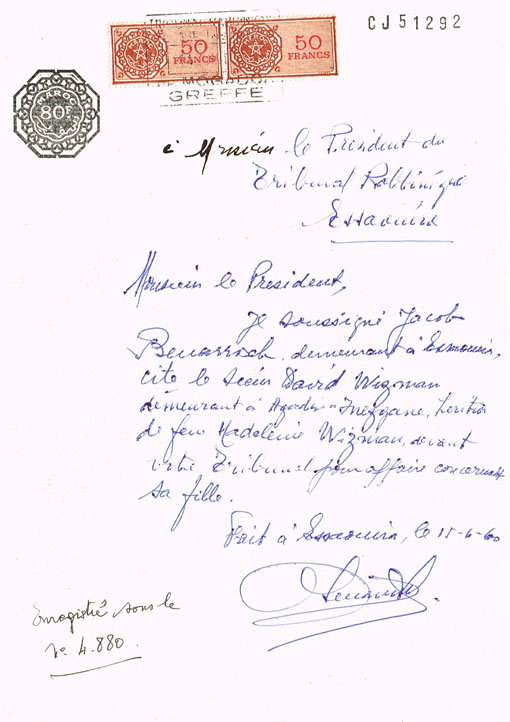 CJ51292
50 FRANCS
50 FRANCS
DE MOGADOR
GREFFE
MAROC
80
à Monsieur le Président du
Tribunal Rabbinique
Essaouira
Monsieur le President,
Je soussigné Jacob
Benarroch demeurant à Essaouira,
cite le Sieur David Wizman
demeurant à Agadir-Inezgane, heritier
de feue Madeleine Wizman, devant
votre Tribunal pour affaire concernant
sa fille.
Fait à Essaouira, le 15-6-60
Enregistré sous le
No 4.880